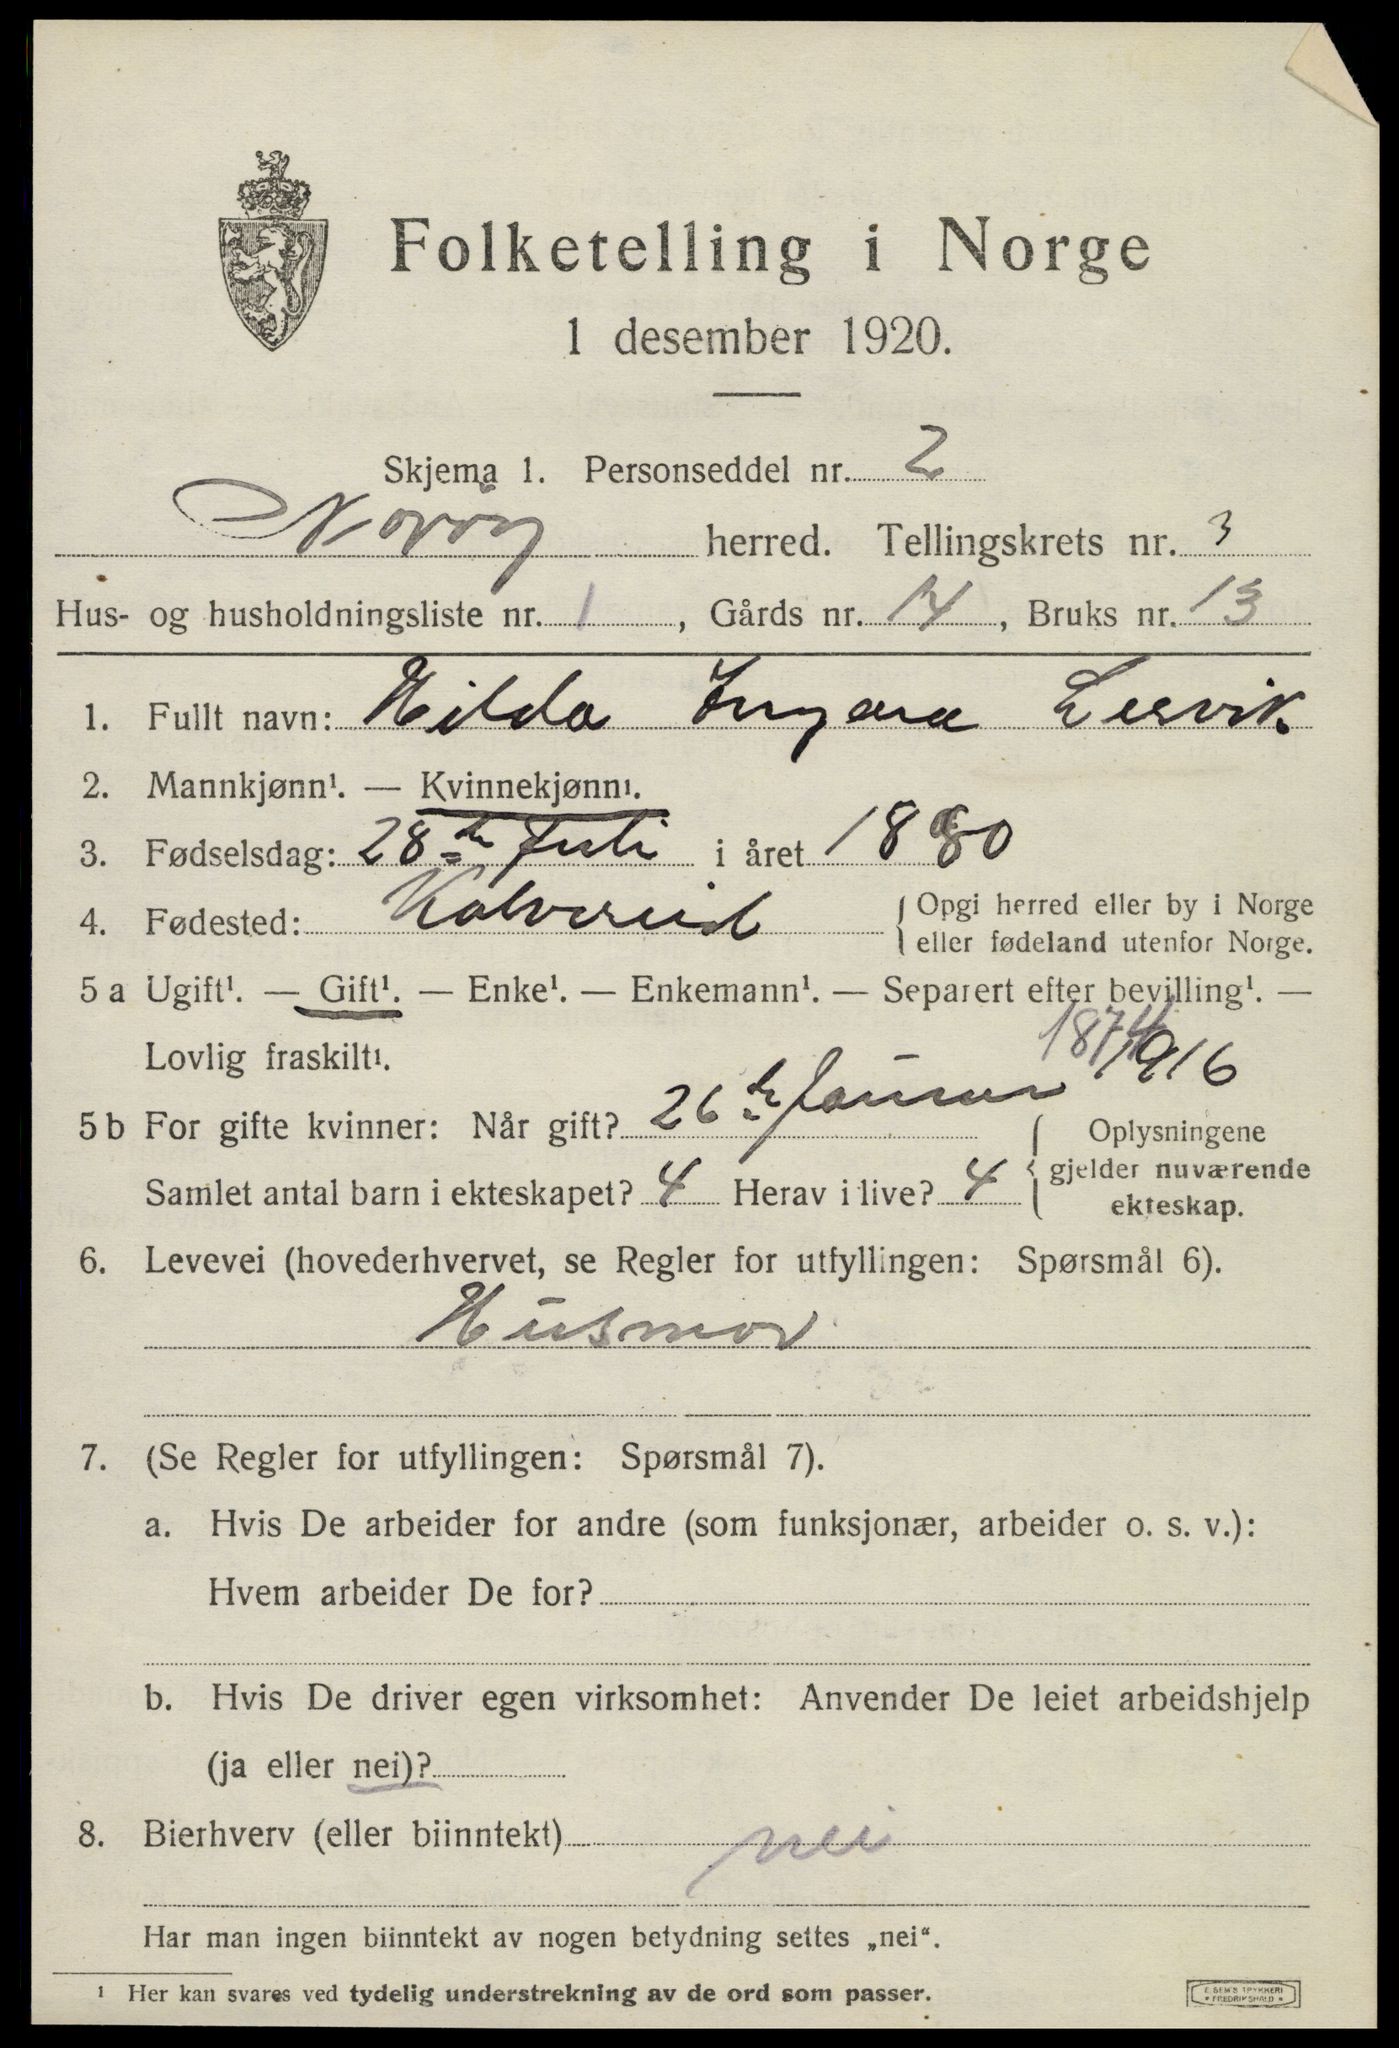 Folketelling i Norge
1 desember 1920.
Skjema 1. Personseddel nr. 2
herred. Tellingskrets nr. 3
Hus- og husholdningsliste nr. 1, Gårds nr. 14, Bruks nr. 13
1. Fullt navn: Hilda
2. Mannkjønn¹. — Kvinnekjønn¹.
3. Fødselsdag: 28de Juli i året 1880
4. Fødested: Kolvereid {Opgi herred eller by i Norge
eller fødeland utenfor Norge.
5 a Ugift¹. — Gift¹. — Enke¹. — Enkemann¹. — Separert efter bevilling¹. —
Lovlig fraskilt¹. 1874
5 b For gifte kvinner: Når gift? 26de Januar 1916 {Oplysningene
Samlet antal barn i ekteskapet? 4 Herav i live? 4 gjelder nuværende
ekteskap.
6. Levevei (hovederhvervet, se Regler for utfyllingen: Spørsmål 6).
Husmor
7. (Se Regler for utfyllingen: Spørsmål 7).
a. Hvis De arbeider for andre (som funksjonær, arbeider o. s. v.):
Hvem arbeider De for?
b. Hvis De driver egen virksomhet: Anvender De leiet arbeidshjelp
(ja eller nei)?
8. Bierhverv (eller biinntekt) nei
Har man ingen biinntekt av nogen betydning settes „nei“.
¹ Her kan svares ved tydelig understrekning av de ord som passer.
E. SEM'S TRYKKERI
• FREDRIKSHALD •